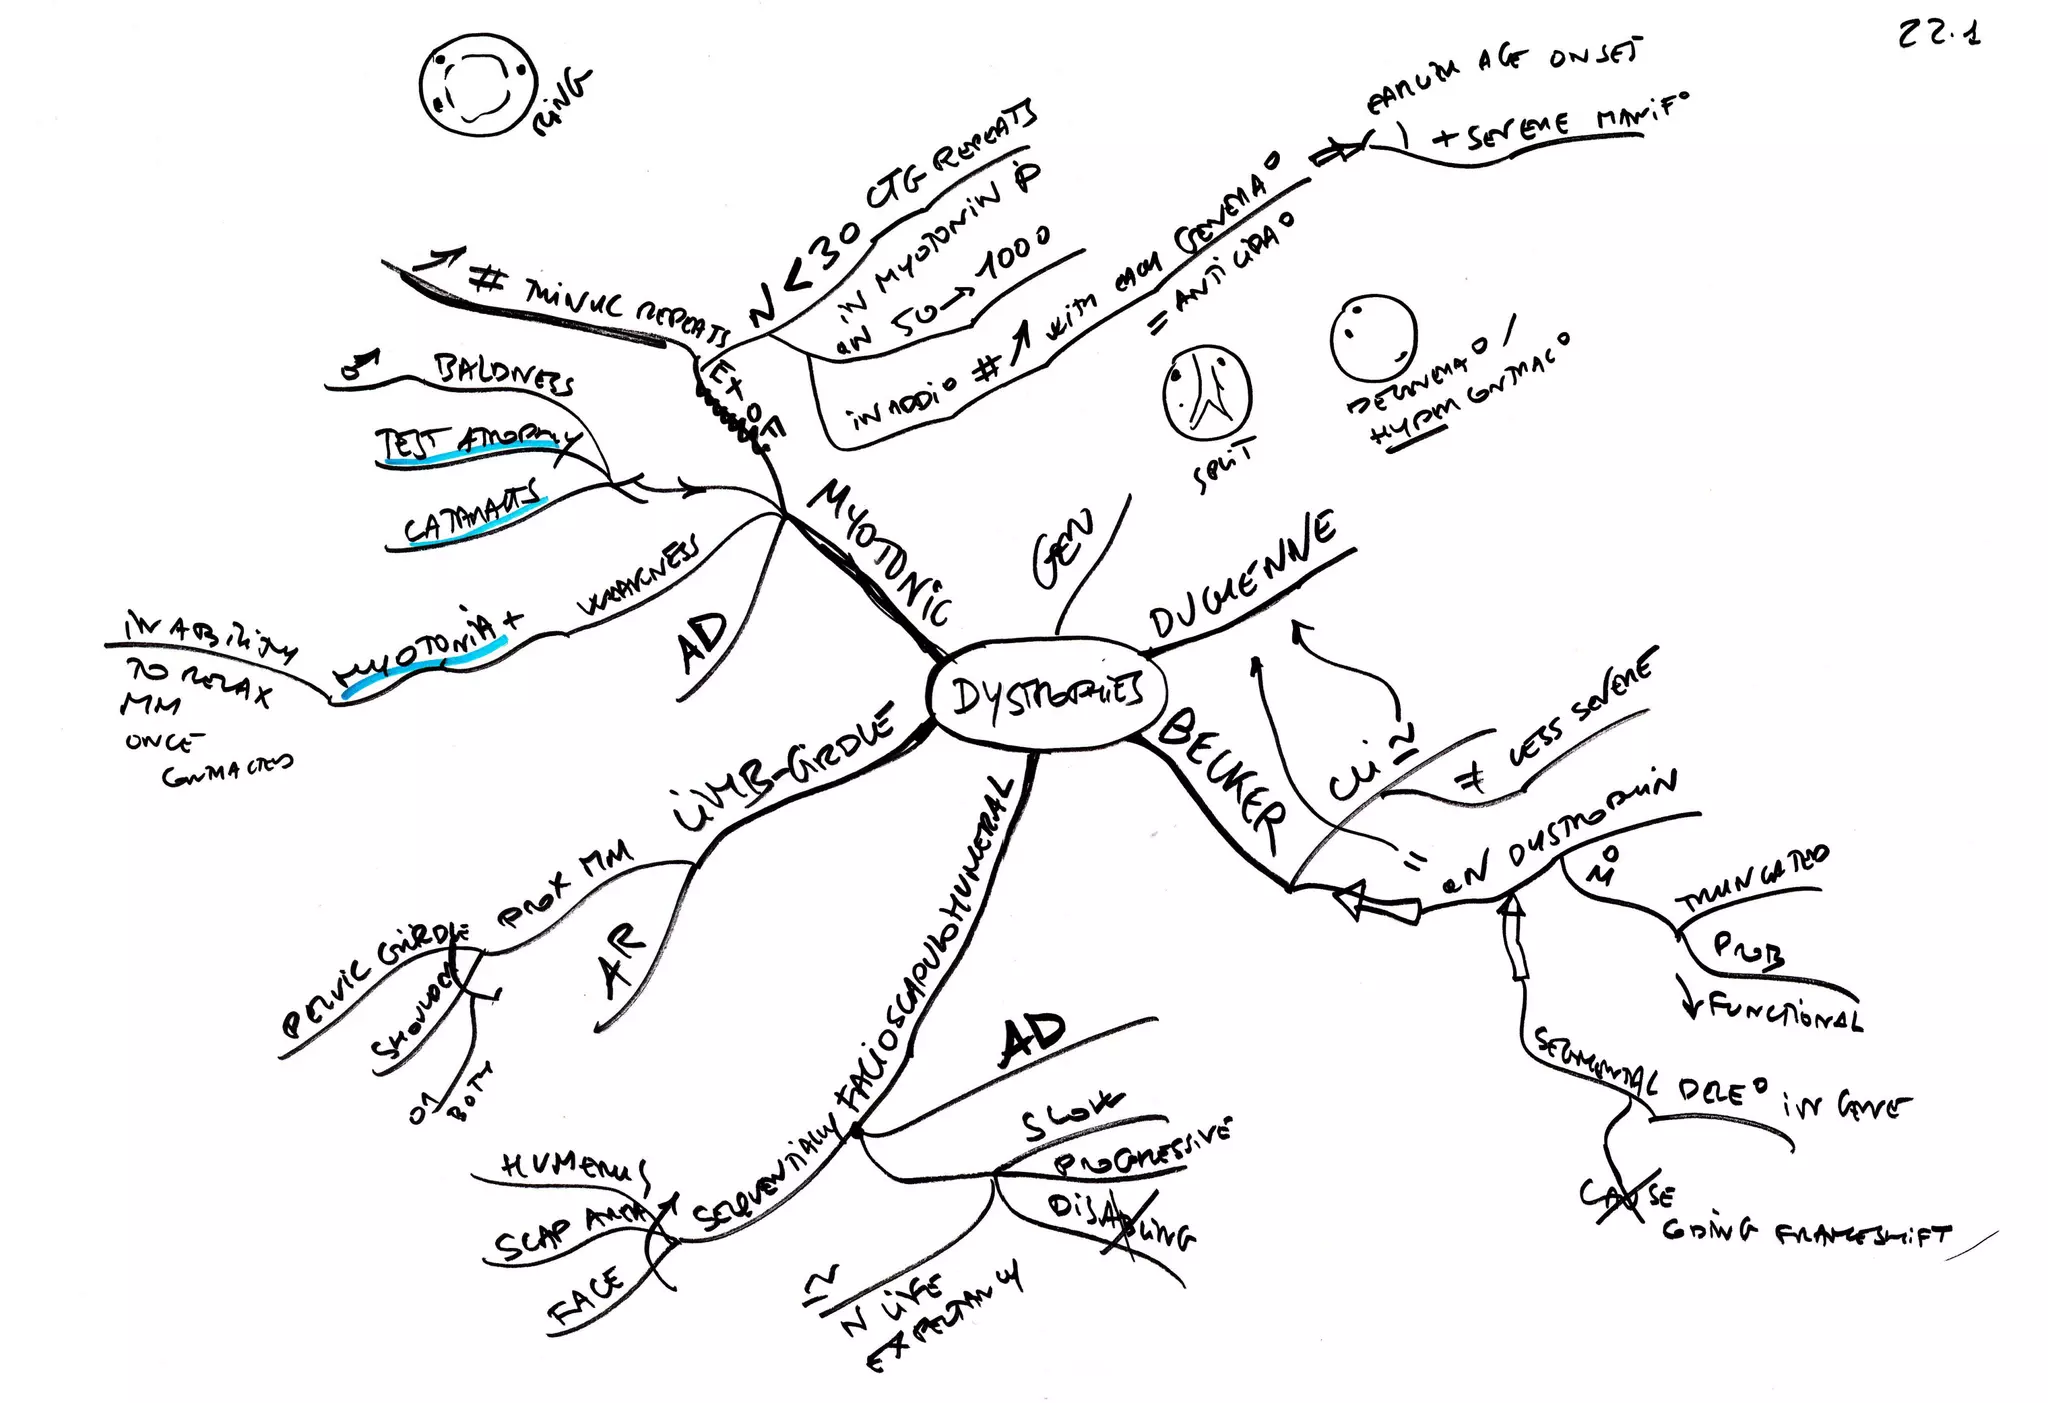 22.1
RING
EARLIER AGE ONSET
+ SEVERE MANIF°
N < 30 CTG REPEATS
IN MYOTONIN P
aN 50 → 1000
IN ADDI° # ↗ WITH EACH GENERA°
= ANTICIPA°
↗ # TRINUC REPEATS
♂ BALDNESS
TEST ATROPHY
CATARACTS
WEAKNESS
MYOTONIA +
INABILITY
TO RELAX
MM
ONCE
CONTRACTED
AD
MYOTONIC
SPLIT
DEGENERA° /
HYPERCONTRAC°
GEN
DUCHENNE
DYSTROPHIES
BECKER
CLI ≃
≠ LESS SEVERE
= aN DYSTROPHIN
M°
TRUNCATED
PROB
↓ FUNCTIONAL
SEGMENTAL DELE° IN GENE
CAUSE
CODING FRAMESHIFT
LIMB-GIRDLE
PROX MM
PELVIC GIRDLE
SHOULDER
BOTH
AR
FACIOSCAPULOHUMERAL
AD
SLOW
PROGRESSIVE
DISABLING
≃
N LIFE
EXPECTANCY
SEQUENTIALLY
HUMERUS
SCAP AREA
FACE